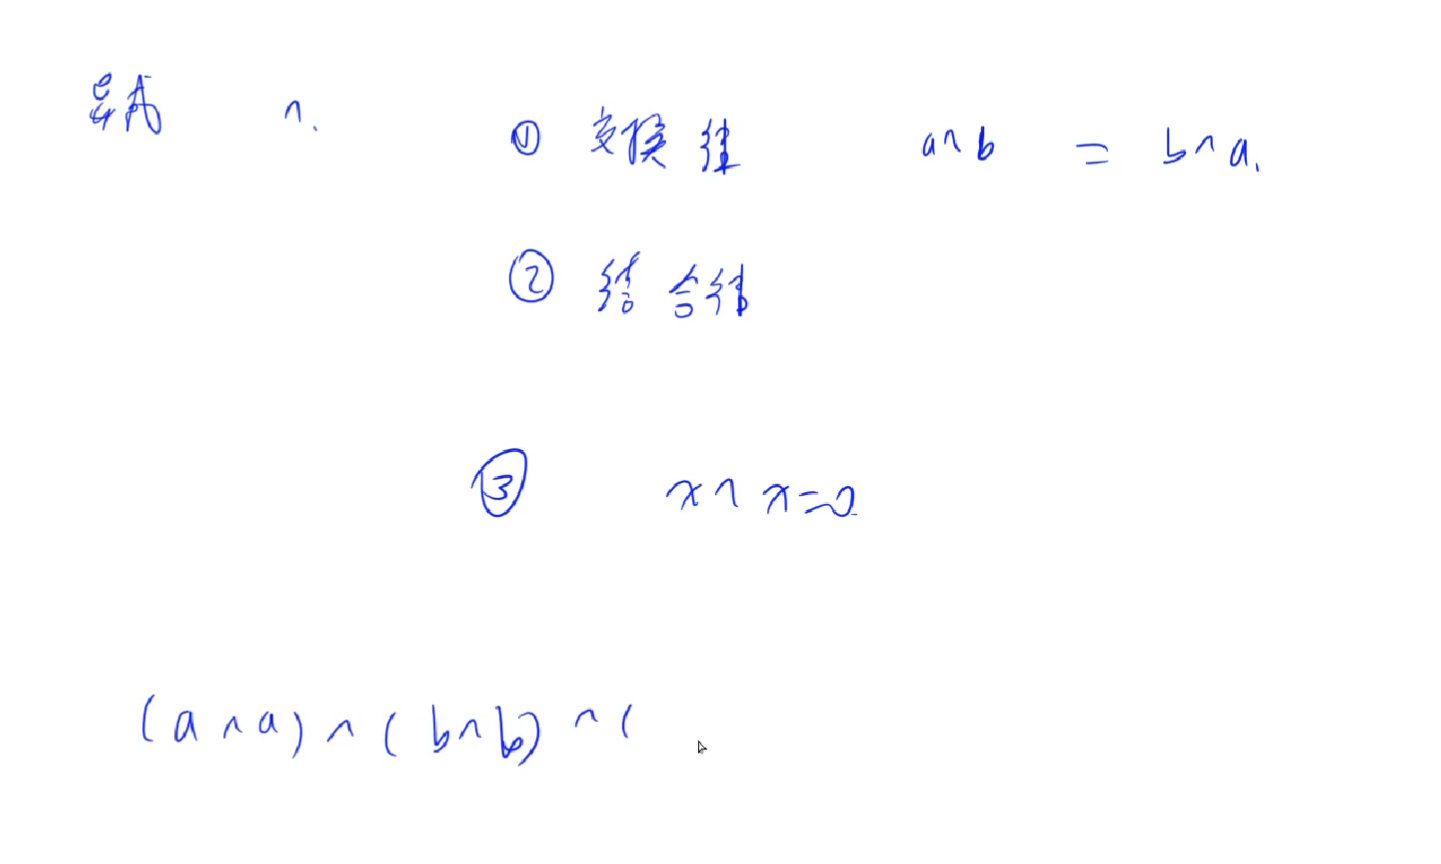 异或 ^.
① 交换律 a^b = b^a.
② 结合律
③ x^x=0
(a^a)^(b^b)^(